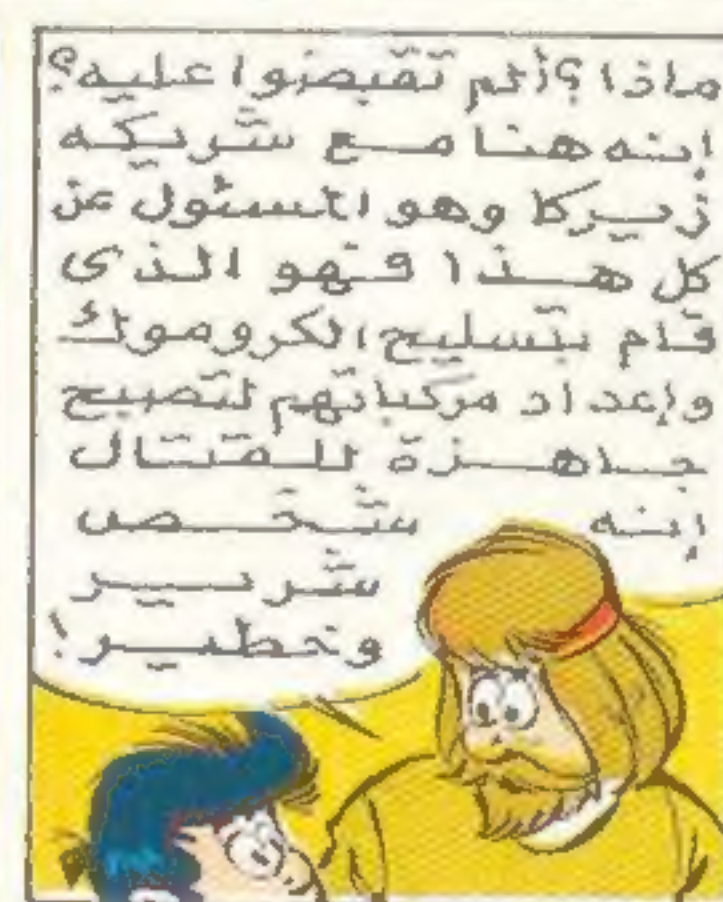 ماذا؟ ألم تقبضوا عليه؟
إنه هنا مع شريكه
زيركا وهو المسئول عن
كل هذا فهو الذى
قام بتسليح الكروموك
وإعداد مركباتهم لتصبح
جاهزة للقتال
إنه شخص
شرير
وخطير!